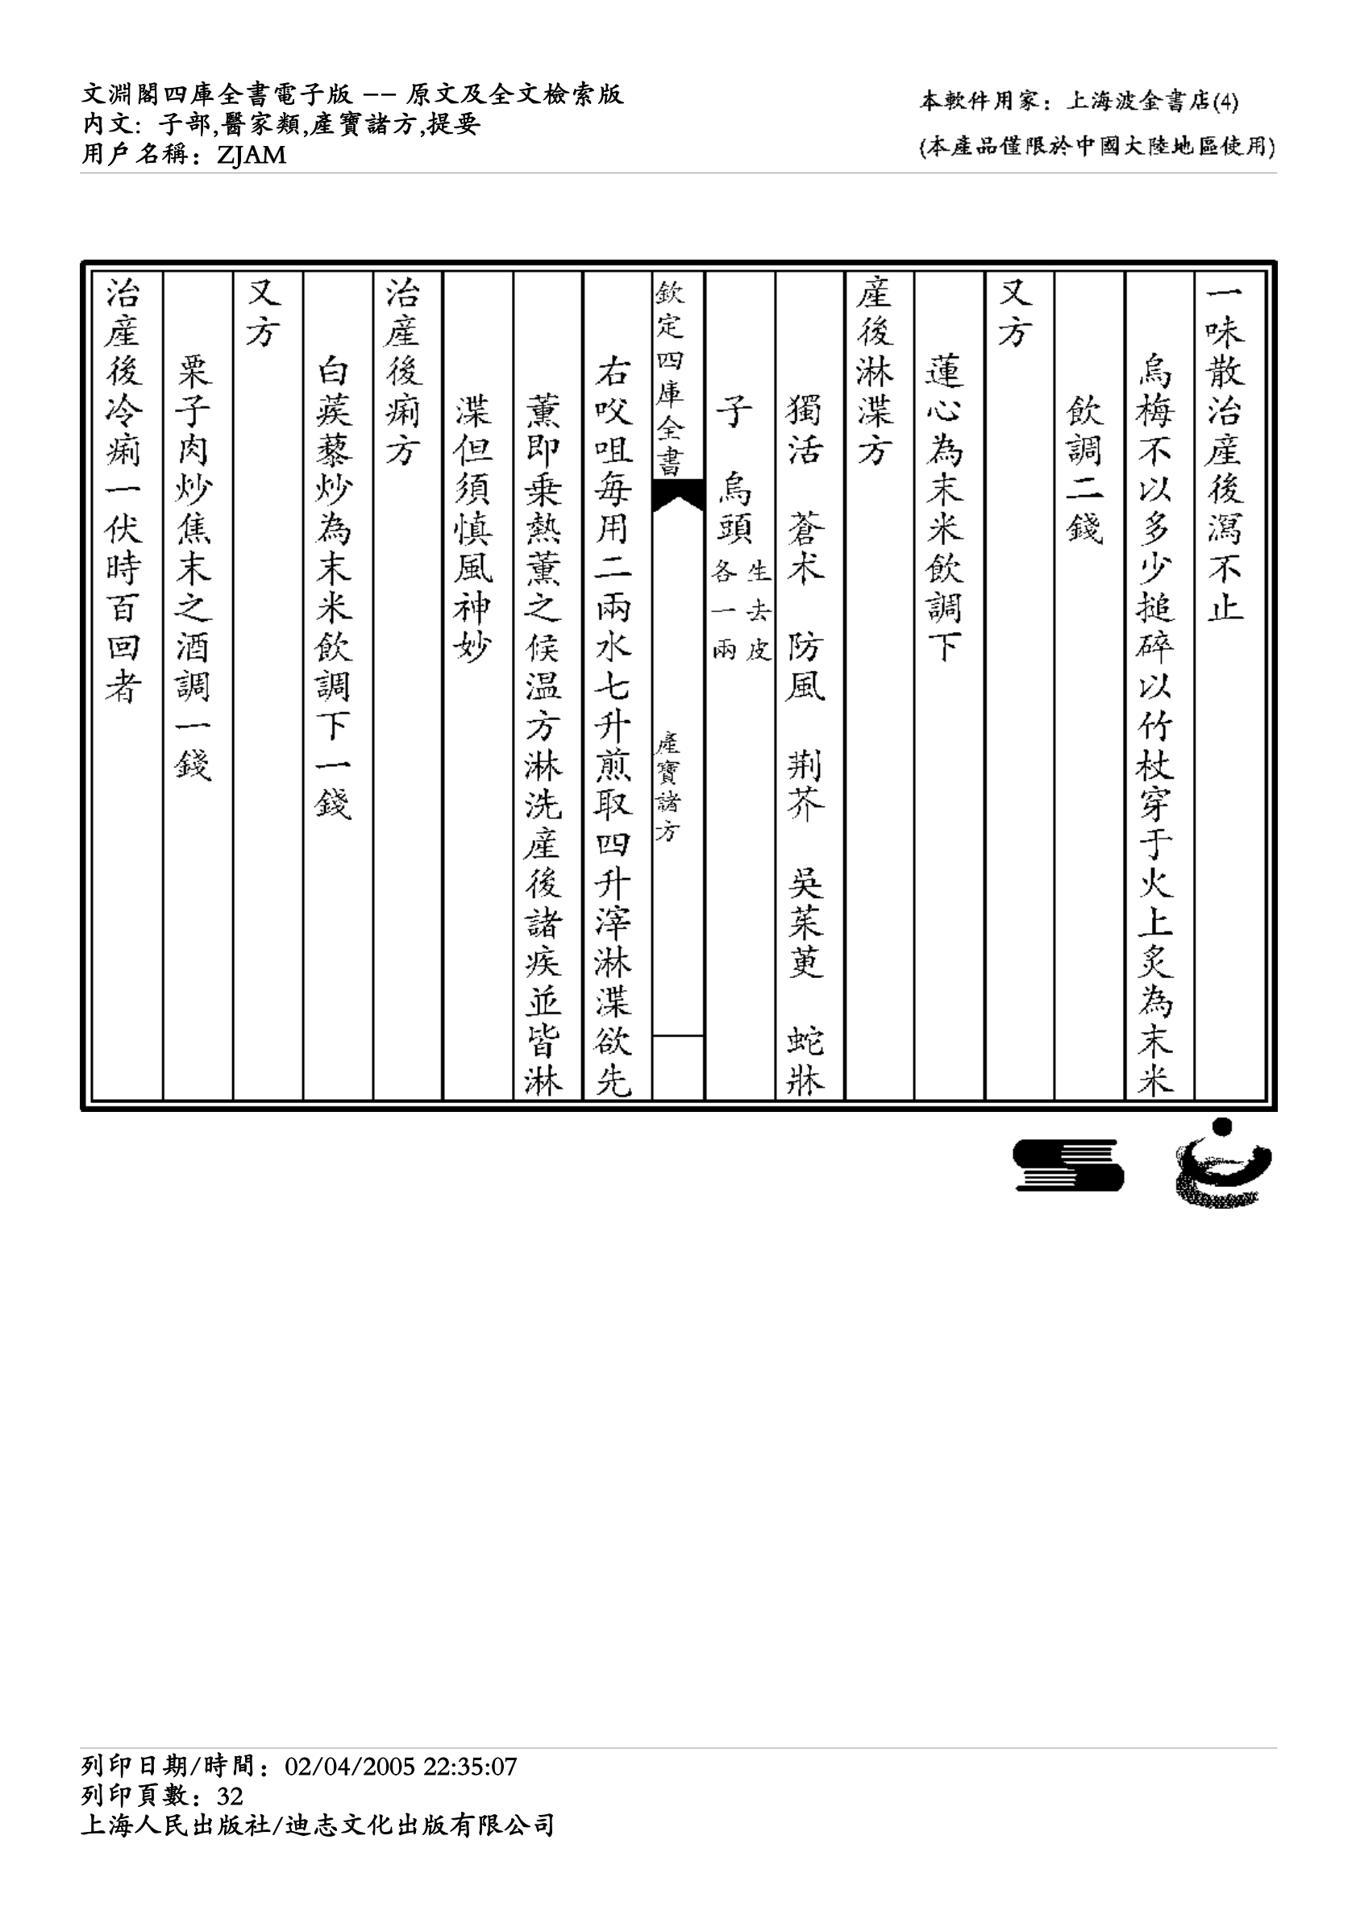 文淵閣四庫全書電子版 -- 原文及全文檢索版
内文: 子部,醫家類,產寶諸方,提要
用戶名稱: ZJAM
本軟件用家: 上海波金書店(4)
(本產品僅限於中國大陸地區使用)
一味散治産後瀉不止
烏梅不以多少搥碎以竹杖穿于火上炙為末米
飲調二錢
又方
蓮心為末米飲調下
産後淋渫方
獨活 蒼术 防風 荆芥 吳茱萸 蛇牀
子 烏頭生去皮各一兩
欽定四庫全書 產寶諸方
右㕮咀每用二兩水七升煎取四升滓淋渫欲先
薰即乗熱薰之候温方淋洗産後諸疾並皆淋
渫但須慎風神妙
治産後痢方
白蒺藜炒為末米飲調下一錢
又方
栗子肉炒焦末之酒調一錢
治産後冷痢一伏時百回者
列印日期/時間: 02/04/2005 22:35:07
列印頁數: 32
上海人民出版社/迪志文化出版有限公司